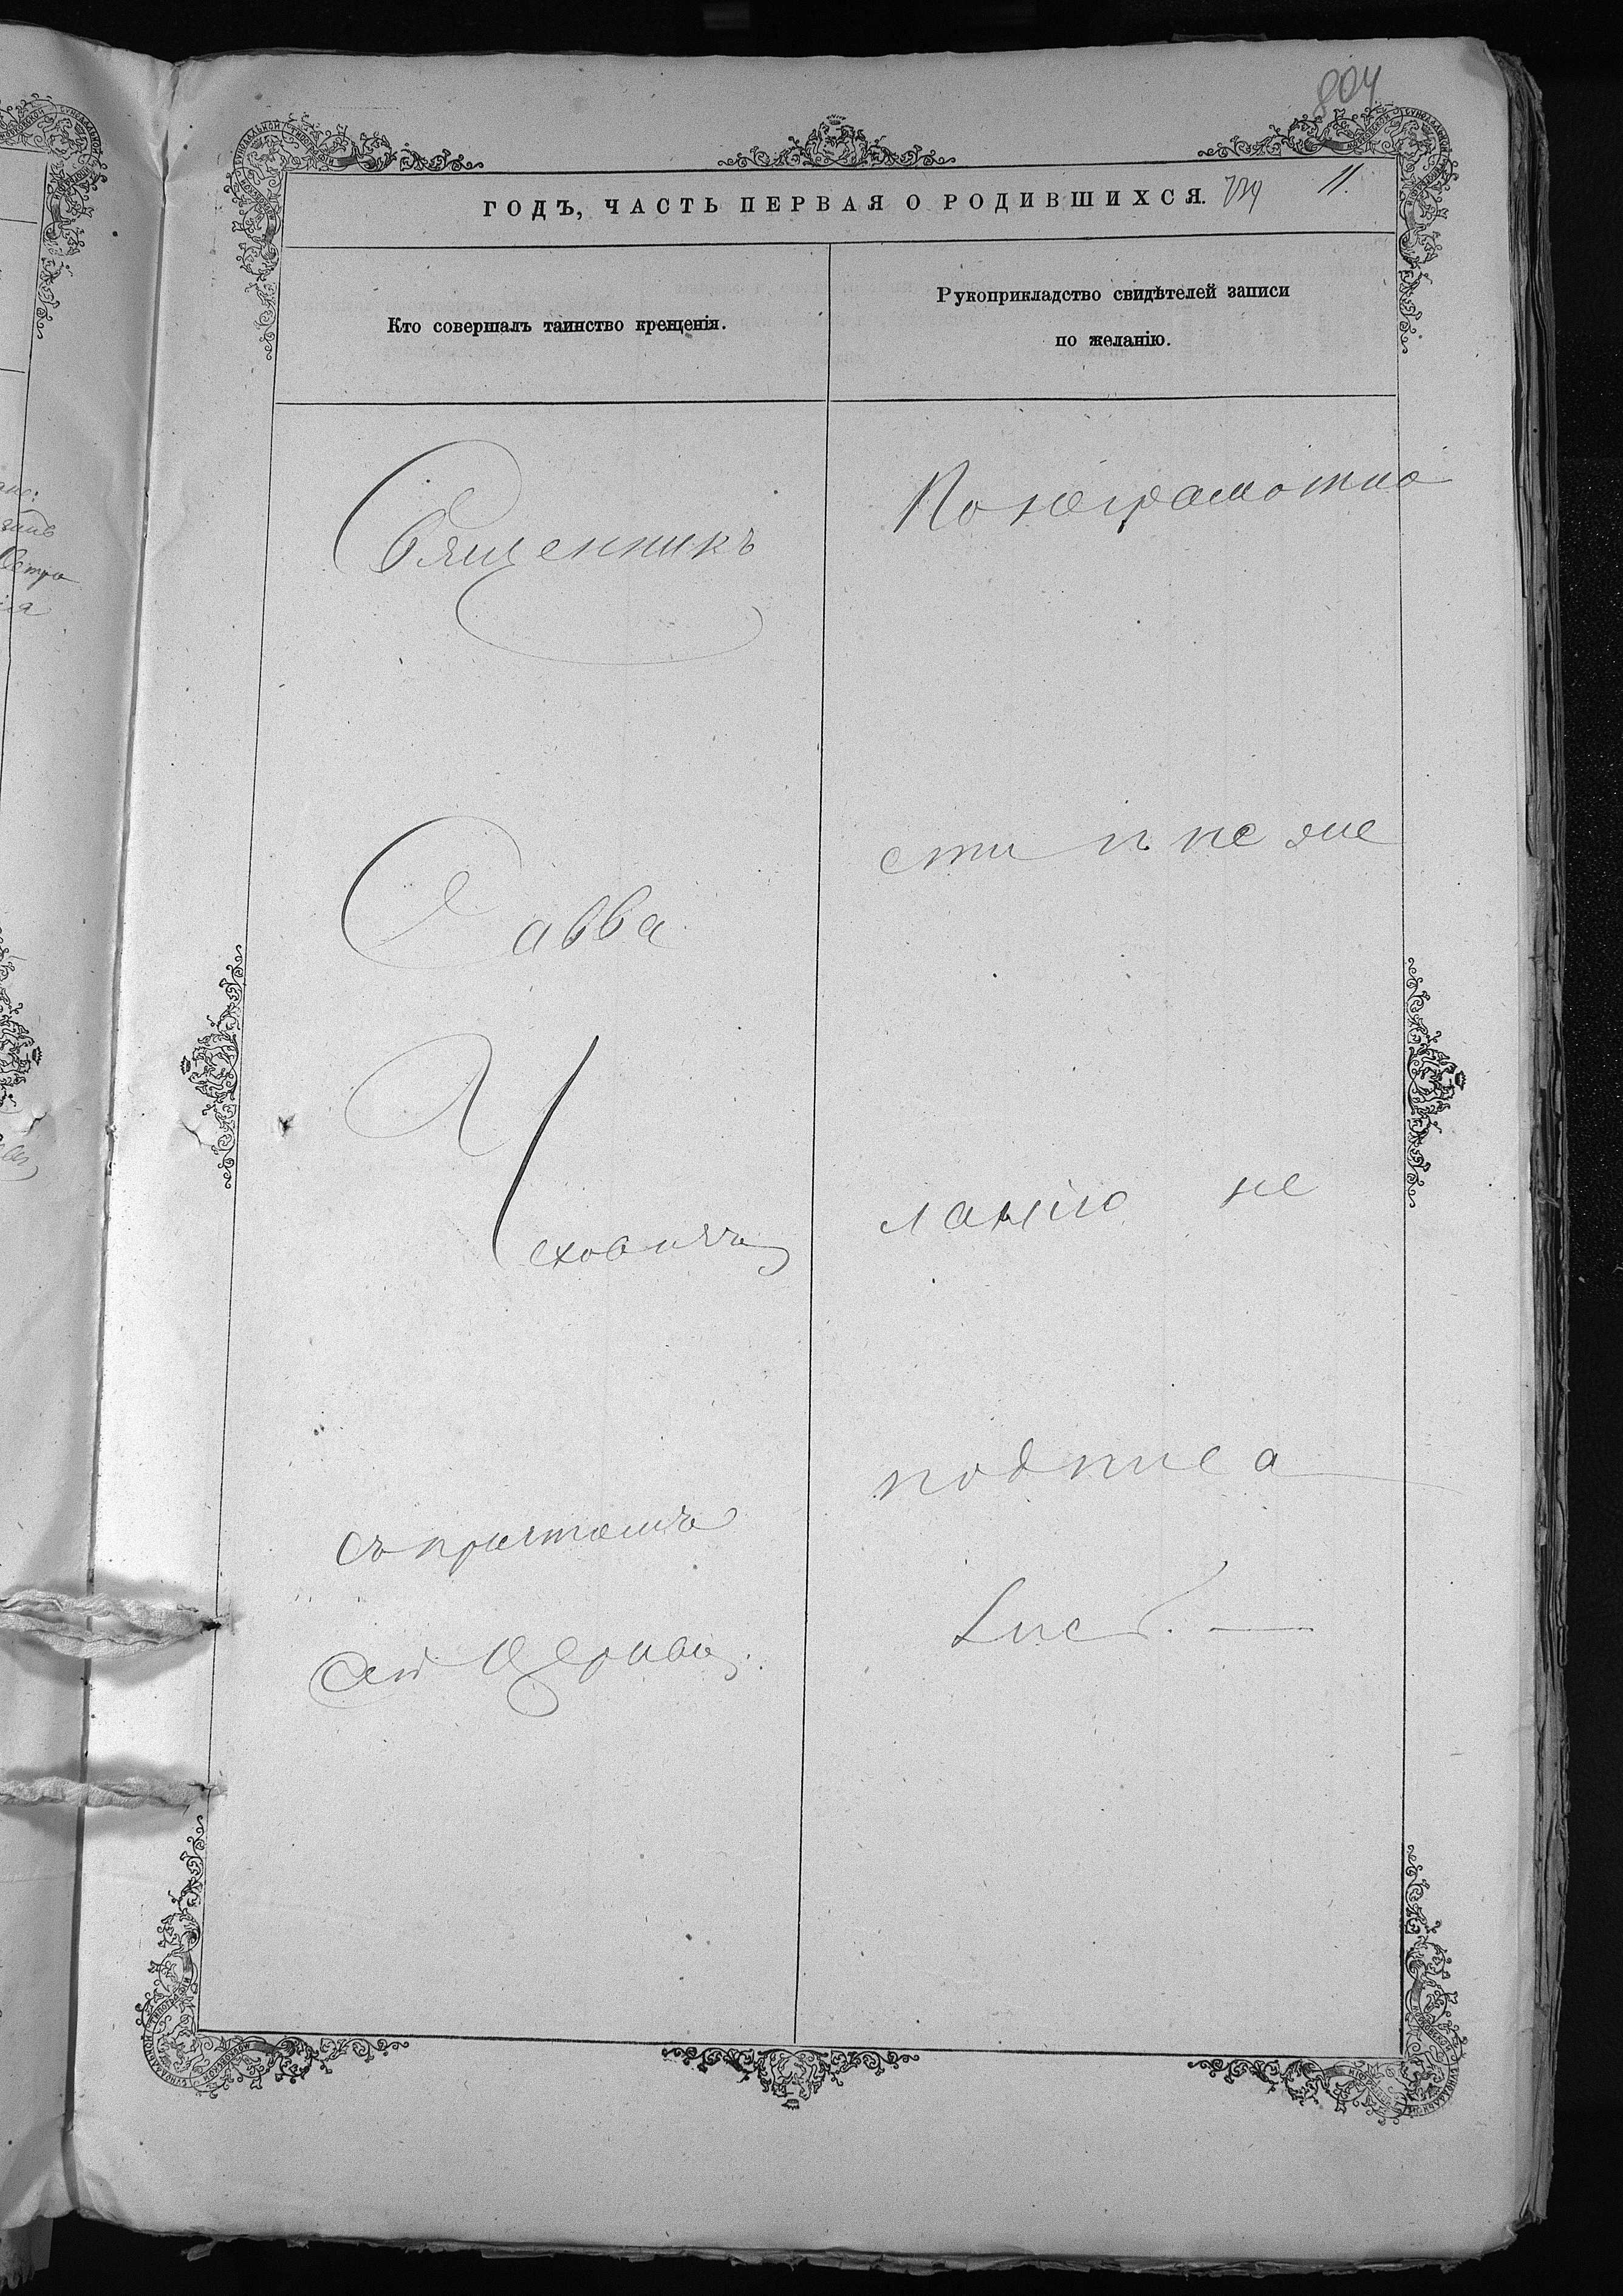 804
ГОДЪ, ЧАСТЬ ПЕРВАЯ О РОДИВШИХСЯ. 11.
Кто совершалъ таинство крещенія.
Рукоприкладство свидѣтелей записи
по желанію.
Священникъ
Савва
Чеховичъ
съ причтомъ
сей Церкви.
По неграмотно
сти и не же
ланію не
подписа
лись. —